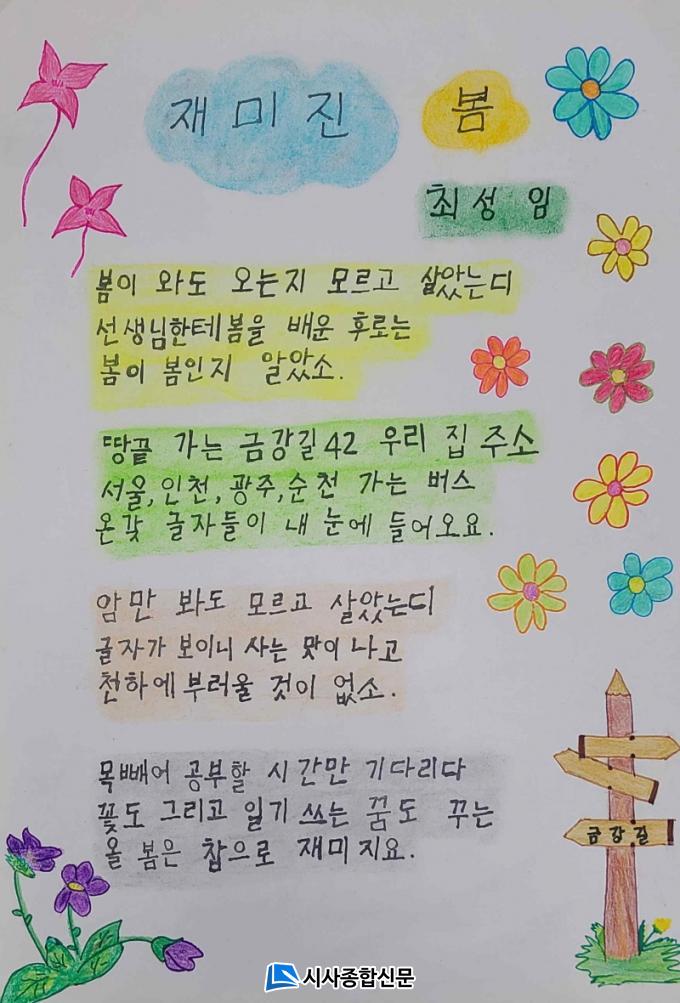 재미진 봄
최성임
봄이 와도 오는지 모르고 살았는디
선생님한테 봄을 배운 후로는
봄이 봄인지 알았소.
땅끝 가는 금강길42 우리 집 주소
서울,인천,광주,순천 가는 버스
온갖 글자들이 내 눈에 들어오요.
암만 봐도 모르고 살았는디
글자가 보이니 사는 맛이 나고
천하에 부러울 것이 없소.
목빼어 공부할 시간만 기다리다
꽃도 그리고 일기 쓰는 꿈도 꾸는
올 봄은 참으로 재미지요.
금강길
시사종합신문